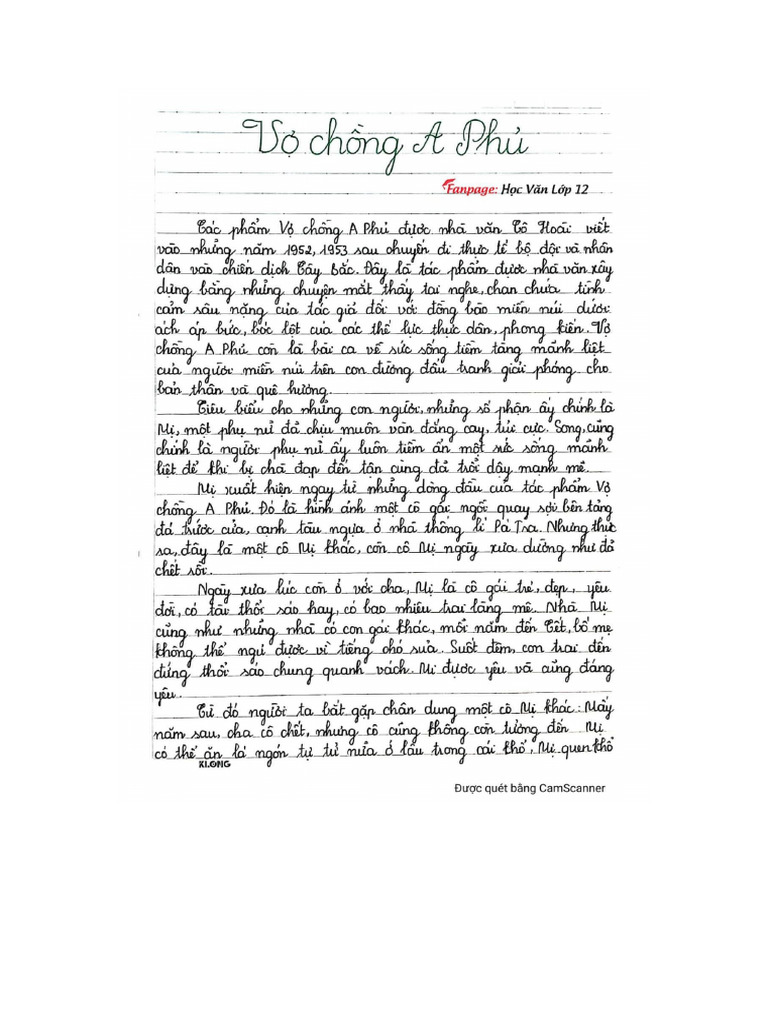 Vợ chồng A Phủ
Fanpage: Học Văn Lớp 12
Tác phẩm Vợ chồng A Phủ được nhà văn Tô Hoài viết
vào những năm 1952, 1953 sau chuyến đi thực tế bộ đội và nhân
dân vào chiến dịch Tây bắc. Đây là tác phẩm được nhà văn xây
dựng bằng những chuyện mắt thấy tai nghe, chan chứa tình
cảm sâu nặng của tác giả đối với đồng bào miền núi dưới
ách áp bức, bóc lột của các thế lực thực dân, phong kiến. Vợ
chồng A Phủ còn là bài ca về sức sống tiềm tàng mãnh liệt
của người miền núi trên con đường đấu tranh giải phóng cho
bản thân và quê hương.
Tiêu biểu cho những con người, những số phận ấy chính là
Mị, một phụ nữ đã chịu muôn vàn đắng cay, tủi cực. Song, cũng
chính là người phụ nữ ấy luôn tiềm ẩn một sức sống mãnh
liệt để khi bị chà đạp đến tận cùng đã trỗi dậy mạnh mẽ.
Mị xuất hiện ngay từ những dòng đầu của tác phẩm Vợ
chồng A Phủ. Đó là hình ảnh một cô gái ngồi quay sợi bên tảng
đá trước cửa, cạnh tàu ngựa ở nhà thống lí Pá Tra. Nhưng thực
sa, đây là một cô Mị khác, còn cô Mị ngày xưa dường như đã
chết rồi.
Ngày xưa lúc còn ở với cha, Mị là cô gái trẻ, đẹp, yêu
đời, có tài thổi sáo hay, có bao nhiêu trai làng mê. Nhà Mị
cũng như những nhà có con gái khác, mỗi năm đến Tết, bố mẹ
không thể ngủ được vì tiếng chó sủa. Suốt đêm, con trai đến
đứng thổi sáo chung quanh vách. Mị được yêu và cũng đáng
yêu.
Từ đó người ta bắt gặp chân dung một cô Mị khác: Mấy
năm sau, cha cô chết, nhưng cô cũng không còn tưởng đến Mị
có thể ăn lá ngón tự tử nữa ở lâu trong cái khổ, Mị quen khổ
KLONG
Được quét bằng CamScanner